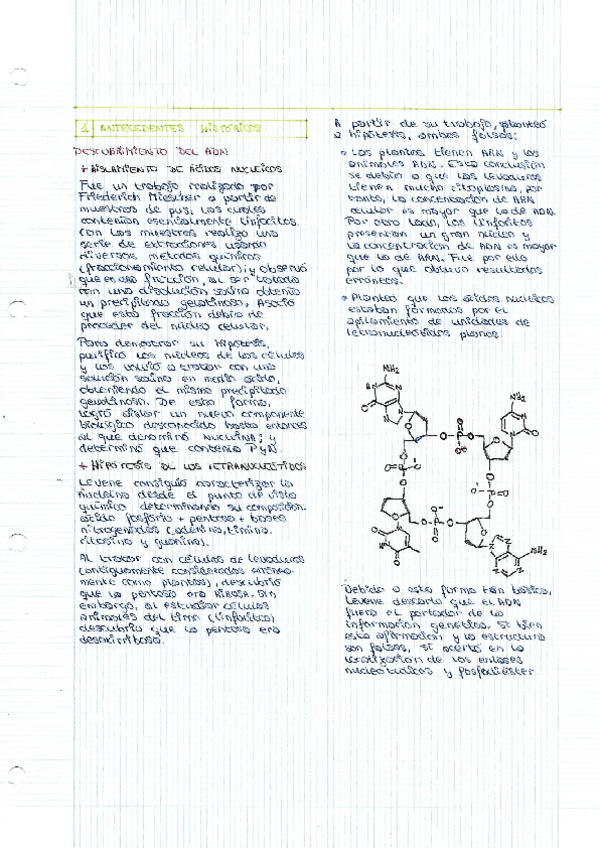 1 ANTECEDENTES HISTÓRICOS
DESCUBRIMIENTO DEL ADN
+ AISLAMIENTO DE ÁCIDOS NUCLEICOS
Fue un trabajo realizado por
Friederich Miescher a partir de
muestras de pus, las cuales
contenían esencialmente linfocitos.
Con las muestras realizó una
serie de extracciones usando
diversos métodos químicos
(fraccionamiento celular); y observó
que en una fracción, al ser tratada
con una disolución salina obtenía
un precipitado gelatinoso. Asoció
que esta fracción debía de
proceder del núcleo celular.
Para demostrar su hipótesis,
purificó los núcleos de las células
y los volvió a tratar con una
solución salina en medio ácido,
obteniendo el mismo precipitado
gelatinoso. De esta forma,
logró aislar un nuevo componente
biológico desconocido hasta entonces
al que denominó NUCLEÍNA; y
determinó que contenía P y N.
+ HIPÓTESIS DE LOS TETRANUCLEÓTIDOS
Levene consiguió caracterizar la
nucleína desde el punto de vista
químico determinando su composición:
ácido fosfórico + pentosa + bases
nitrogenadas (adenina, timina,
citosina y guanina).
Al tratar con células de levaduras
(antiguamente consideradas
como plantas), descubrió
que la pentosa era RIBOSA. Sin
embargo, al estudiar células
animales del timo (linfocitos)
descubrió que la pentosa era
desoxirribosa.
A partir de su trabajo, planteó
2 hipótesis, ambas falsas:
• Las plantas tienen ARN y los
animales ADN. Esta conclusión
se debió a que las levaduras
tienen mucho citoplasma, por
tanto, la concentración de ARN
celular es mayor que la de ADN.
Por otro lado, los linfocitos
presentan un gran núcleo y
la concentración de ADN es mayor
que la de ARN. Fue por ello
por lo que obtuvo resultados
erróneos.
• Planteó que los ácidos nucleicos
estaban formados por el
apilamiento de unidades de
tetranucleótidos planos.
Debido a esta forma tan básica,
Levene descartó que el ADN
fuera el portador de la
información genética. Si bien
esta afirmación y la estructura
son falsas, sí acertó en la
localización de los enlaces
nucleotídicos y fosfodiéster